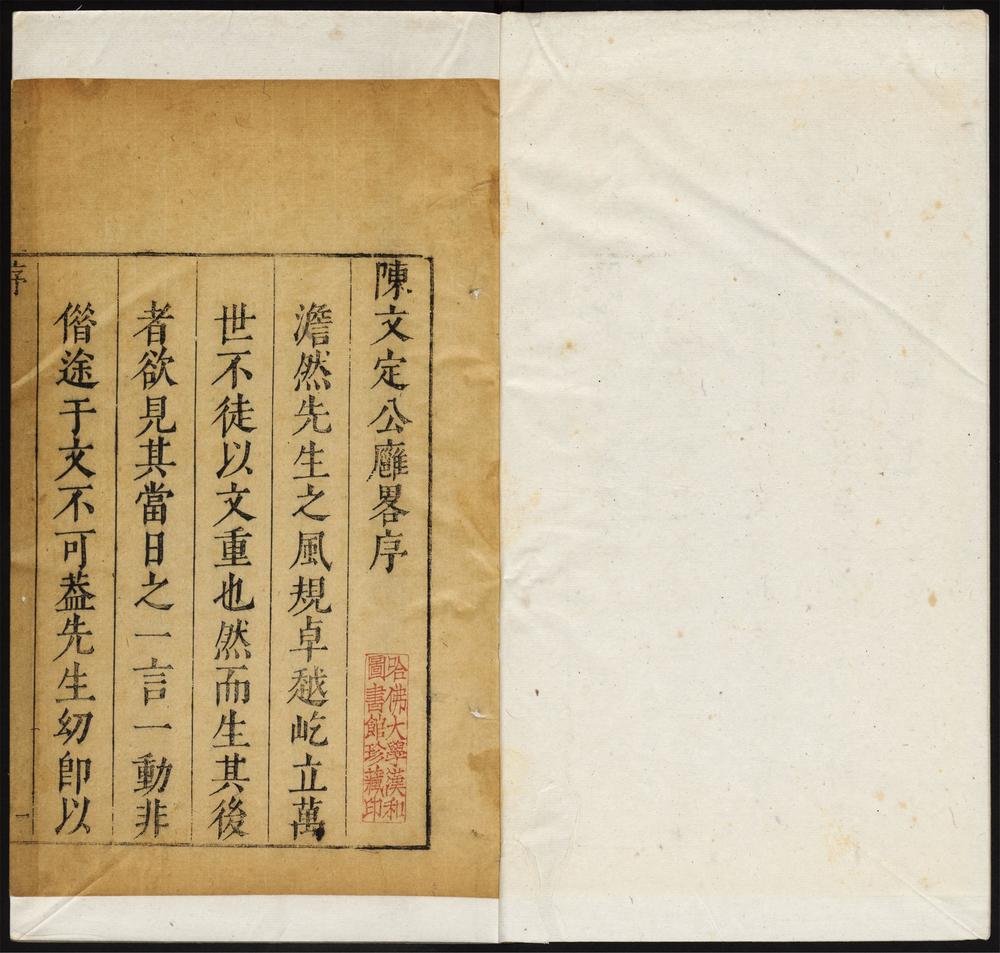 陳文定公廱畧序
哈佛大學漢和
圖書館珍藏印
澹然先生之風規卓越屹立萬
世不徒以文重也然而生其後
者欲見其當日之一言一動非
偕途于文不可葢先生幼卽以
序
一